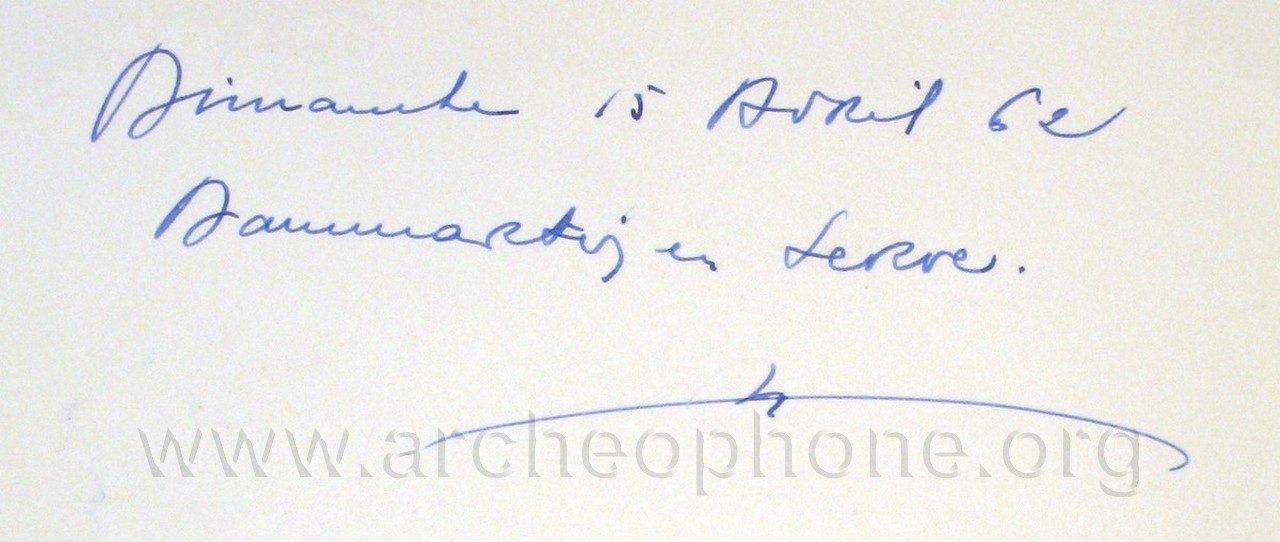 Dimanche 15 Avril 62
Dammartin en Serve.
www.archeophone.org